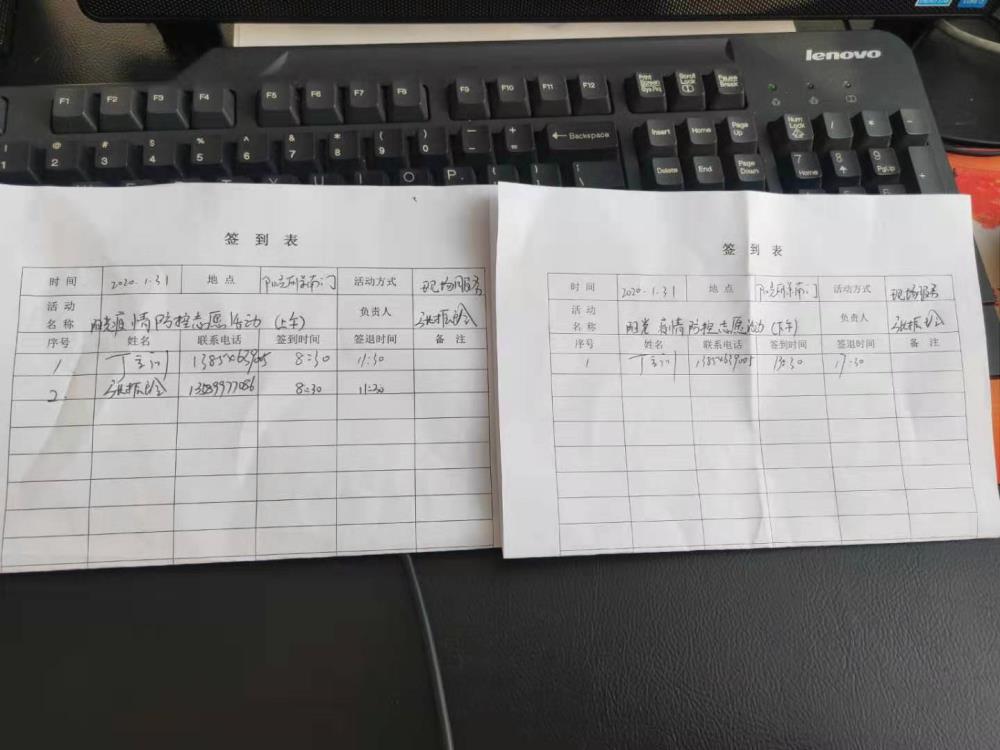 lenovo
F1 F2 F3 F4 F5 F6 F7 F8 F9 F10 F11 F12 Print Screen Sys Rq Scroll Lock Pause Break
! 1 @ 2 # 3 $ 4 % 5 6 & 7 * 8 ( 9 ) 0 - + = ← Backspace Insert Home Page Up Num Lock / * -
T Y U I O P Delete End Page Down 7 Home 8 9 PgUp +
签到表
时间 2020.1.31 地点 南门 活动方式 现场服务
活动名称 阳光疫情防控志愿活动 (上午) 负责人 张振玲
序号 姓名 联系电话 签到时间 签退时间 备注
1 丁 8:30 11:30
2. 张振玲 8:30 11:30
签到表
时间 2020.1.31 地点 南门 活动方式 现场服务
活动名称 阳光疫情防控志愿活动 (下午) 负责人 张振玲
序号 姓名 联系电话 签到时间 签退时间 备注
1 丁 17:30